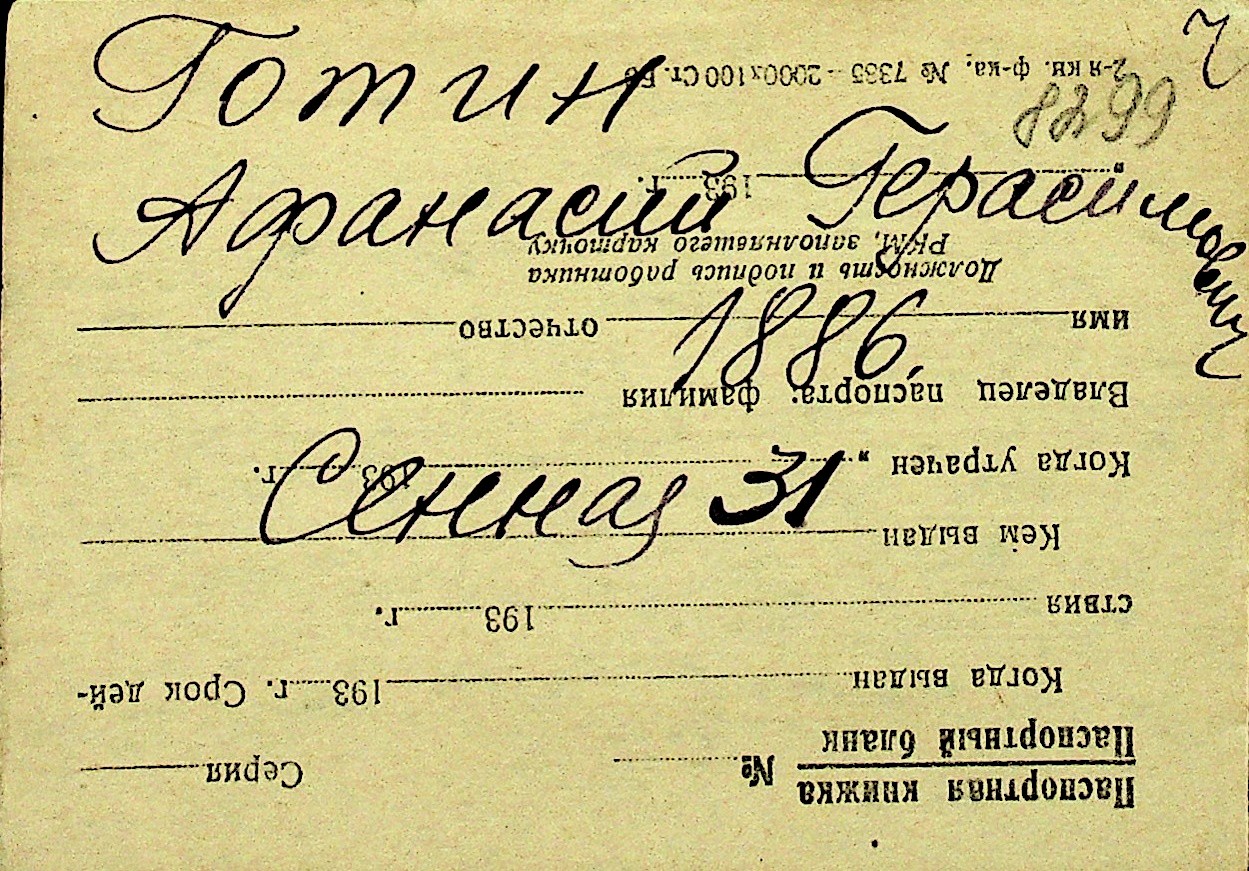 Готин
Афанасий Герасимович
1886.
Сенная 31
8299
Паспортная книжка
Паспортный бланк
№ Серия
Когда выдан 193 г. Срок дей-
ствия 193 г.
Кем выдан
Когда утрачен „ 193 г.
Владелец паспорта: фамилия
имя отчество
Должность и подпись работника
РКМ, заполнявшего карточку
„ 193 г.
2-я кн. ф-ка. № 7335—2000х100 Ст.